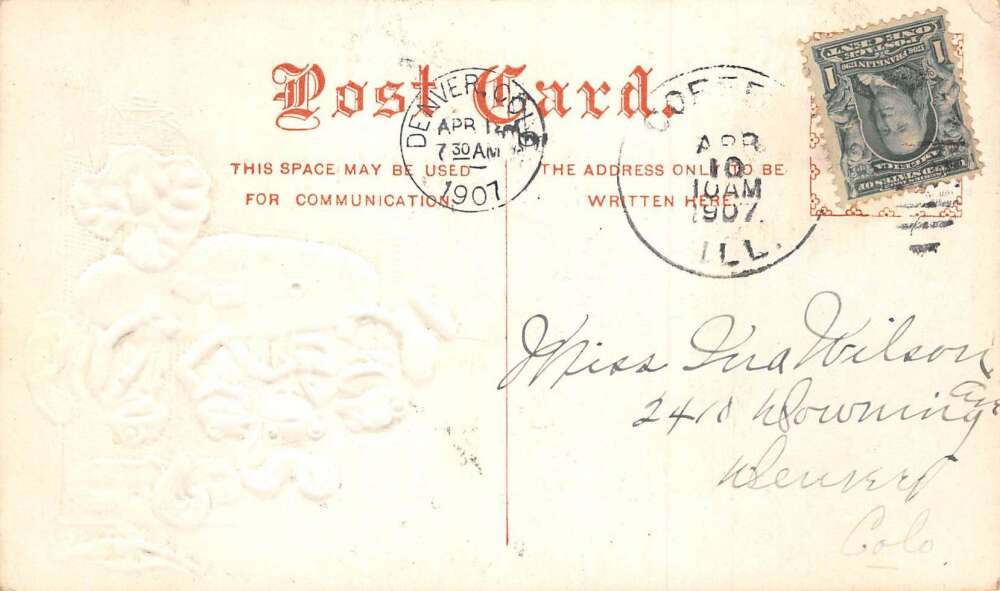 Post Card.
THIS SPACE MAY BE USED
FOR COMMUNICATION
THE ADDRESS ONLY TO BE
WRITTEN HERE.
DENVER, COLO
APR
7 30 AM
1907
APR
10
10AM
1907
ILL.
POSTAGE
ONE CENT
1 1
FRANKLIN
Miss Ina Wilson
2410 Downing Ave
Denver
Colo